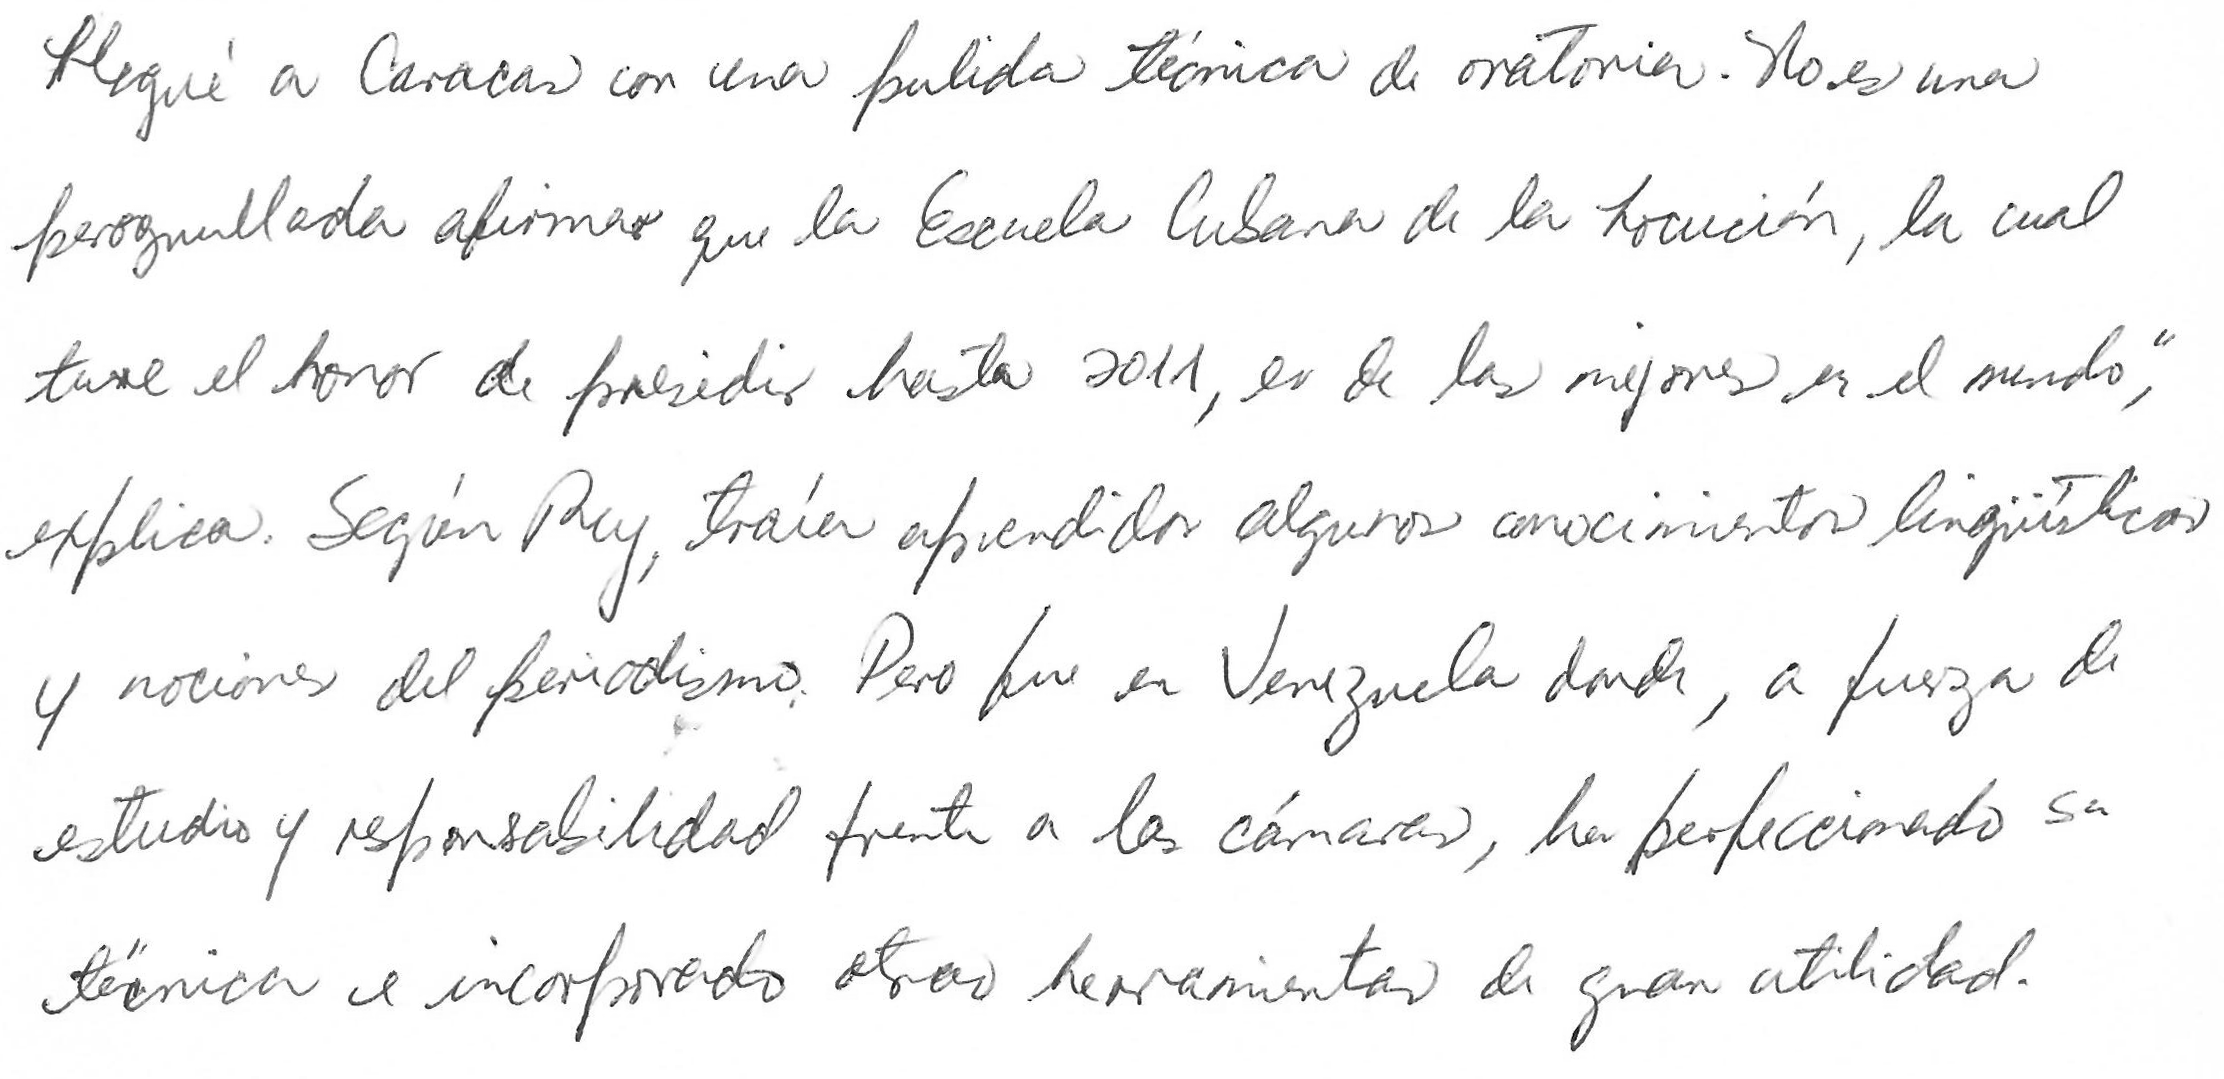 Llegué a Caracas con una pulida técnica de oratoria. No es una
perogrullada afirmar que la Escuela Cubana de la Locución, la cual
tuve el honor de presidir hasta 2011, es de las mejores en el mundo",
explica. Según Rey, traía aprendidos algunos conocimientos lingüísticos
y nociones del periodismo. Pero fue en Venezuela donde, a fuerza de
estudio y responsabilidad frente a las cámaras, ha perfeccionado su
técnica e incorporado otras herramientas de gran utilidad.